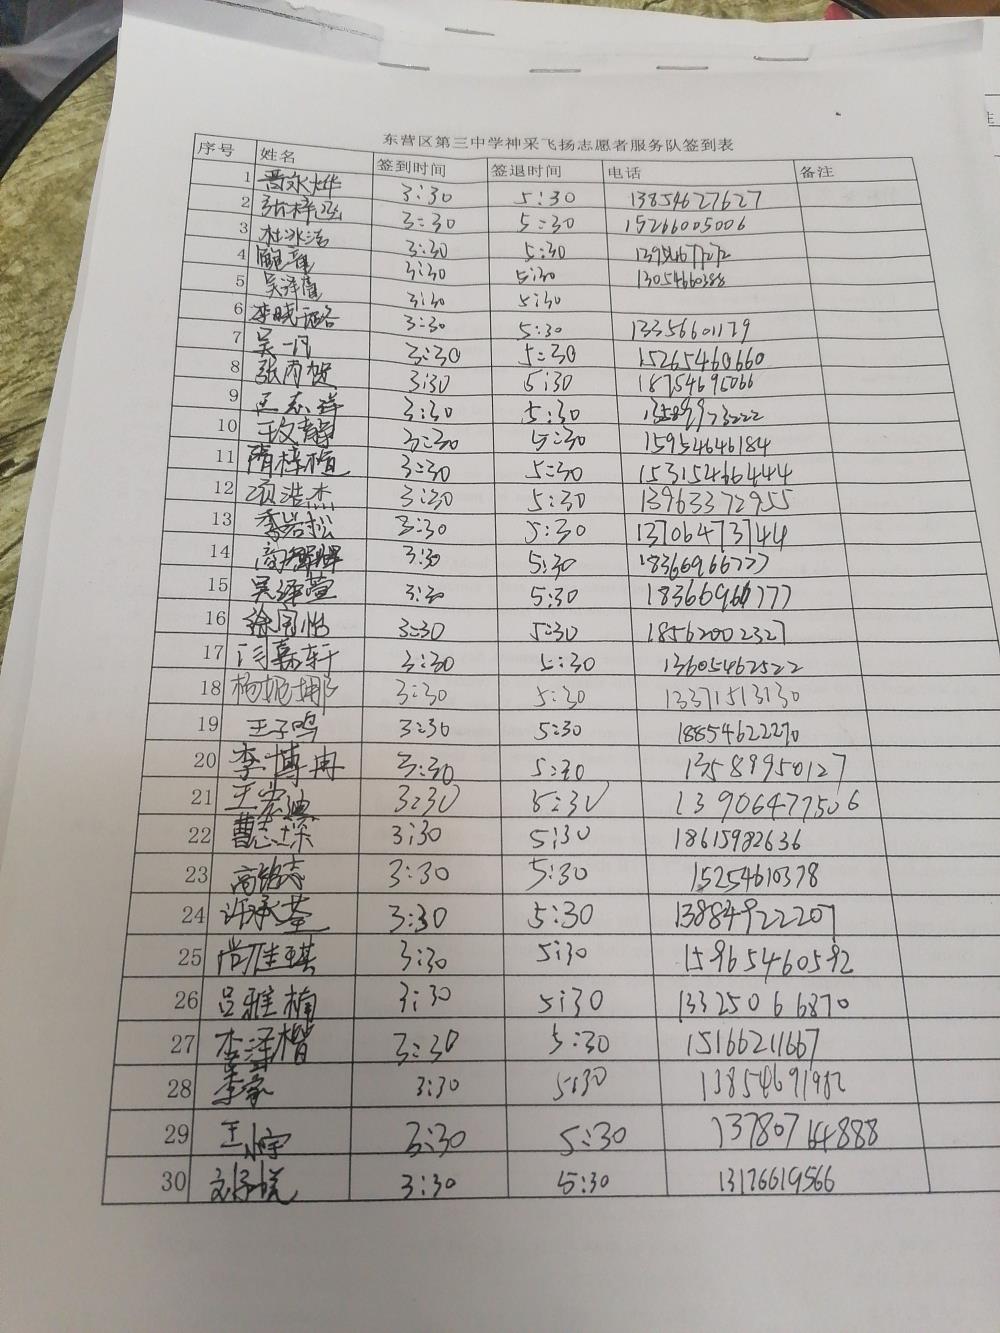 东营区第三中学神采飞扬志愿者服务队签到表
序号 姓名 签到时间 签退时间 电话 备注
1 晋永烨 3:30 5:30 13854627627
2 张梓泓 3:30 5:30 15266005006
3 杜冰洁 3:30 5:30
4 3:30 5:30 13054660388
5 吴泽萱 3:30 5:30
6 李晓 3:30 5:30 13356601179
7 吴一凡 3:30 5:30 15265460660
8 张芮贺 3:30 5:30 18754695066
9 王志祥 3:30 5:30 13589973222
10 王玫静 3:30 5:30 15954646184
11 隋梓植 3:30 5:30 15315466444
12 项浩杰 3:30 5:30 13963372955
13 季岩松 3:30 5:30 13706473744
14 3:30 5:30 18366966777
15 吴泽萱 3:30 5:30 18366966777
16 徐宇怡 3:30 5:30 18562002327
17 闫慕轩 3:30 5:30 13605462522
18 杨妮娜 3:30 5:30 13371513130
19 王子鸣 3:30 5:30 18854622270
20 李博冉 3:30 5:30 13589950127
21 王宏迪 3:30 5:30 13906477506
22 曹志琛 3:30 5:30 18615982636
23 高铭志 3:30 5:30 15254610378
24 许承荃 3:30 5:30 13884922207
25 尚佳琪 3:30 5:30 15965460592
26 吕雅楠 3:30 5:30 13325066870
27 李泽楷 3:30 5:30 15166211667
28 李豪 3:30 5:30 13854691982
29 王小宇 3:30 5:30 13780764888
30 刘子悦 3:30 5:30 13176619566